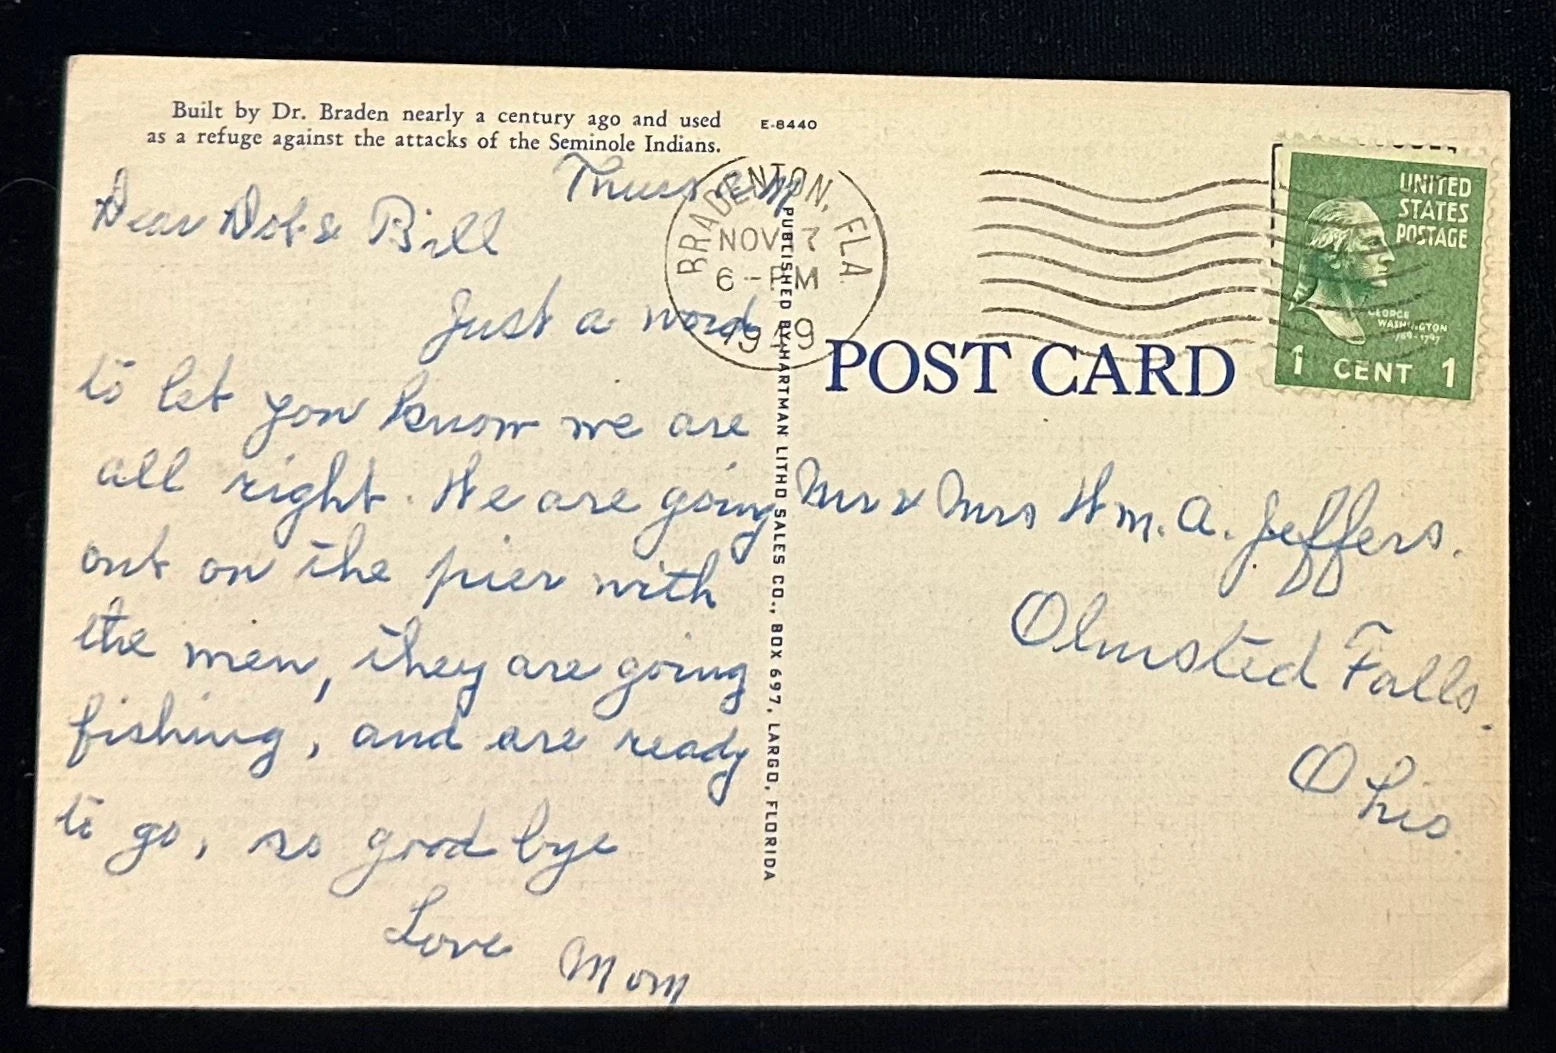 Built by Dr. Braden nearly a century ago and used
as a refuge against the attacks of the Seminole Indians.
E-8440
Thurs
Dear Dot & Bill
Just a word
to let you know we are
all right. We are going
out on the pier with
the men, they are going
fishing, and are ready
to go, so good bye
Love Mom
PUBLISHED BY HARTMAN LITHO SALES CO., BOX 697, LARGO, FLORIDA
BRADENTON, FLA
NOV 7
6-PM
1949
POST CARD
UNITED
STATES
POSTAGE
GEORGE
WASHINGTON
1 CENT 1
Mr & Mrs Wm. A. Jeffers.
Olmsted Falls.
Ohio